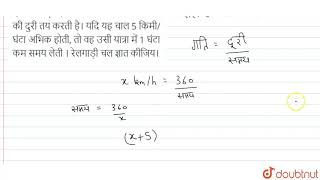 की दुरी तय करती है। यदि यह चाल 5 किमी/
घंटा अभिक होती, तो वह उसी यात्रा में 1 घंटा
कम समय लेती । रेलगाड़ी चल ज्ञात कीजिय।
गति = दूरी
समय
x km/h = 360
समय
समय = 360
x
(x+5)
=
doubtnut